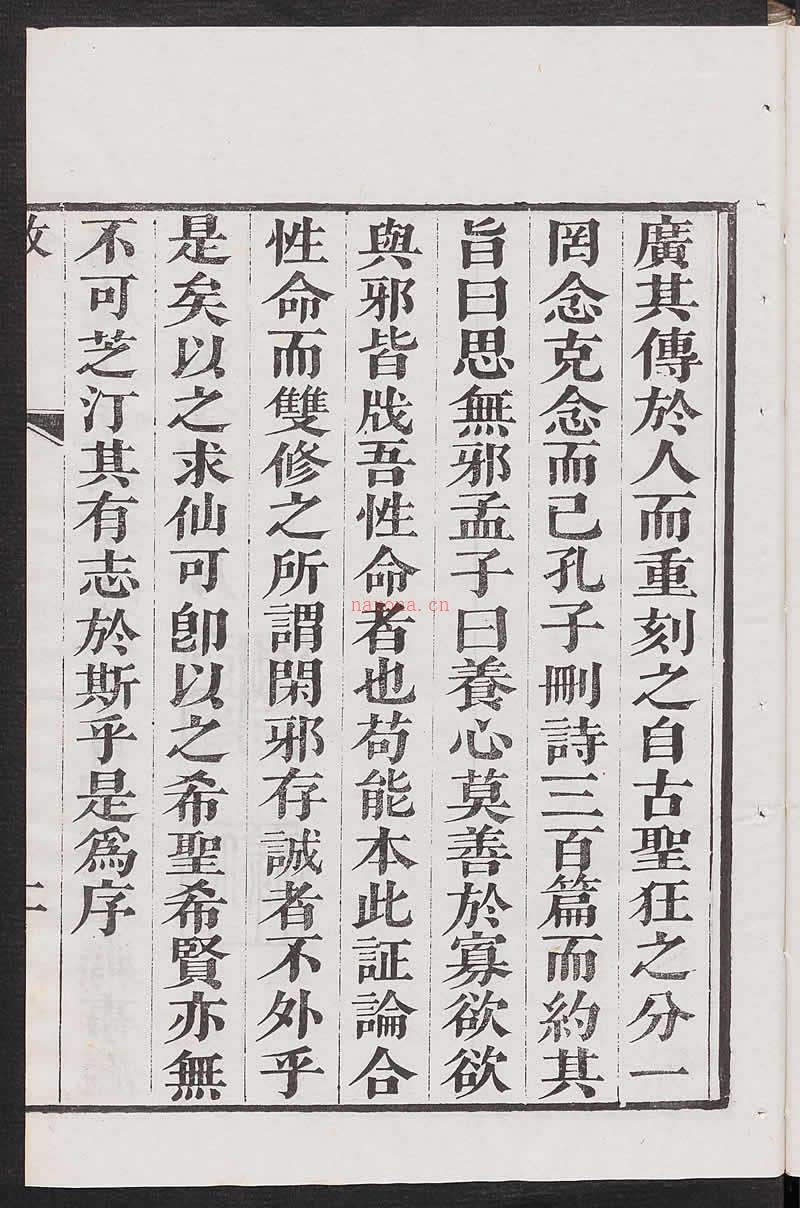 廣其傳於人而重刻之自古聖狂之分一
罔念克念而已孔子刪詩三百篇而約其
旨曰思無邪孟子曰養心莫善於寡欲欲
與邪皆戕吾性命者也苟能本此証論合
性命而雙修之所謂閑邪存誠者不外乎
是矣以之求仙可卽以之希聖希賢亦無
不可芝汀其有志於斯乎是爲序
二
nayona.cn